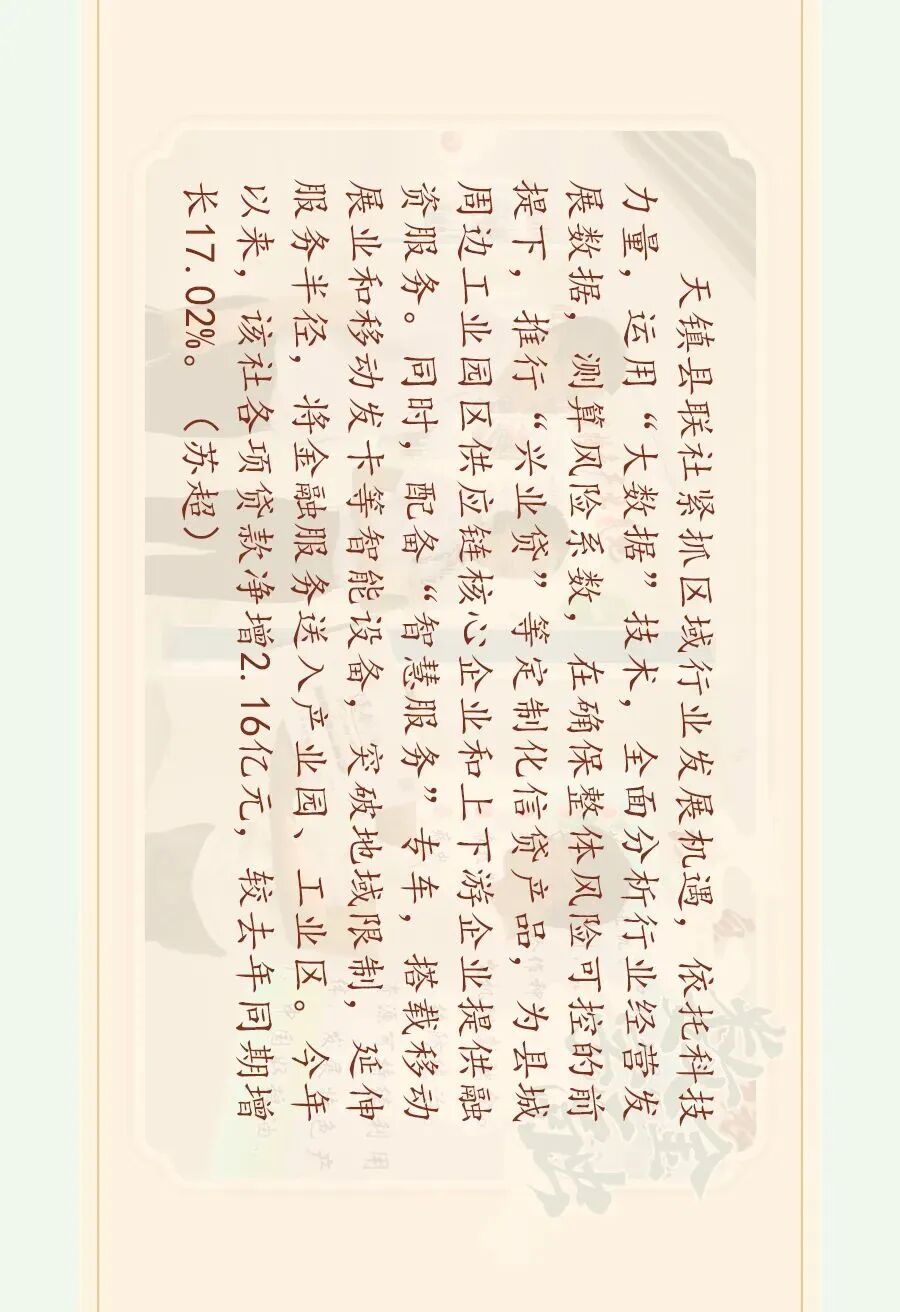 天镇县联社紧抓区域行业发展机遇，依托科技
力量，运用“大数据”技术，全面分析行业经营发
展数据，测算风险系数，在确保整体风险可控的前
提下，推行“兴业贷”等定制化信贷产品，为县城
周边工业园区供应链核心企业和上下游企业提供融
资服务。同时，配备“智慧服务”专车，搭载移动
展业和移动发卡等智能设备，突破地域限制，延伸
服务半径，将金融服务送入产业园、工业区。今年
以来，该社各项贷款净增2.16亿元，较去年同期增
长17.02%。（苏超）